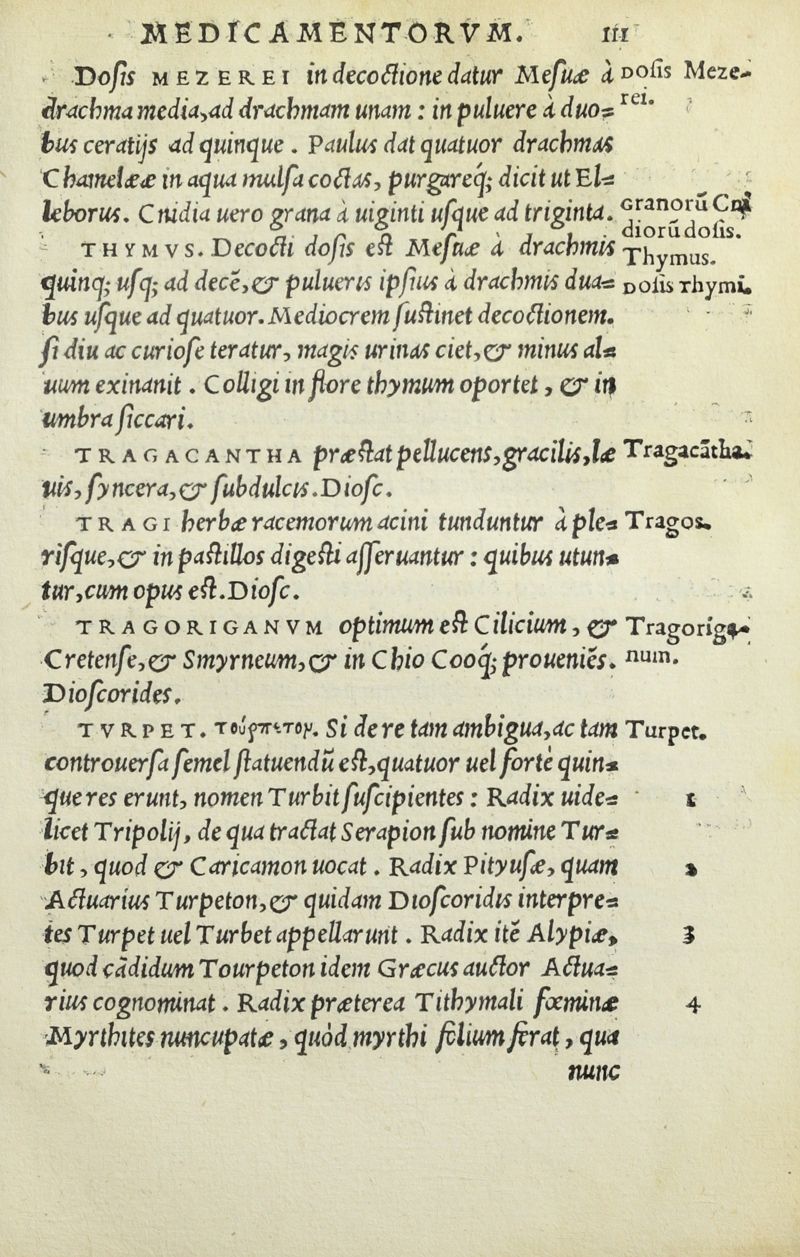 MEDICAMENTORVM. III
Dosis MEZEREI in decoctione datur Mesuæ à
drachma media, ad drachmam unam : in puluere à duo=
bus ceratijs ad quinque . Paulus dat quatuor drachmas
Chamelææ in aqua mulsa coctas, purgareq; dicit ut El=
leborus. Cnidia uero grana à uiginti usque ad triginta.
THYMVS. Decocti dosis est Mesuæ à drachmis
quinq; usq; ad decē, & pulueris ipsius à drachmis dua=
bus usque ad quatuor. Mediocrem sustinet decoctionem.
si diu ac curiose teratur, magis urinas ciet, & minus al=
uum exinanit . Colligi in flore thymum oportet , & in
umbra siccari.
TRAGACANTHA præstat pellucens, gracilis, læ
uis, syncera, & subdulcis. Diosc.
TRAGI herbæ racemorum acini tunduntur à ple=
risque, & in pastillos digesti asseruantur : quibus utun=
tur, cum opus est. Diosc.
TRAGORIGANVM optimum est Cilicium , &
Cretense, & Smyrneum, & in Chio Cooq; proueniēs.
Dioscorides.
TVRPET. τούρπετον. Si de re tam ambigua, ac tam
controuersa semel statuendū est, quatuor uel forte quin=
que res erunt, nomen Turbit suscipientes : Radix uide=
licet Tripolij, de qua tractat Serapion sub nomine Tur=
bit , quod & Caricamon uocat . Radix Pityusæ, quam
Actuarius Turpeton, & quidam Dioscoridis interpre=
tes Turpet uel Turbet appellarunt . Radix itē Alypiæ,
quod cādidum Tourpeton idem Græcus auctor Actua=
rius cognominat . Radix præterea Tithymali fœminæ
Myrthites nuncupatæ , quòd myrthi folium ferat , qua
nunc
Dosis Meze-
rei.
Granorū Cni
diorū dosis.
Thymus.
Dosis Thymi.
Tragacātha.
Tragos.
Tragoriga-
num.
Turpet.
1
2
3
4